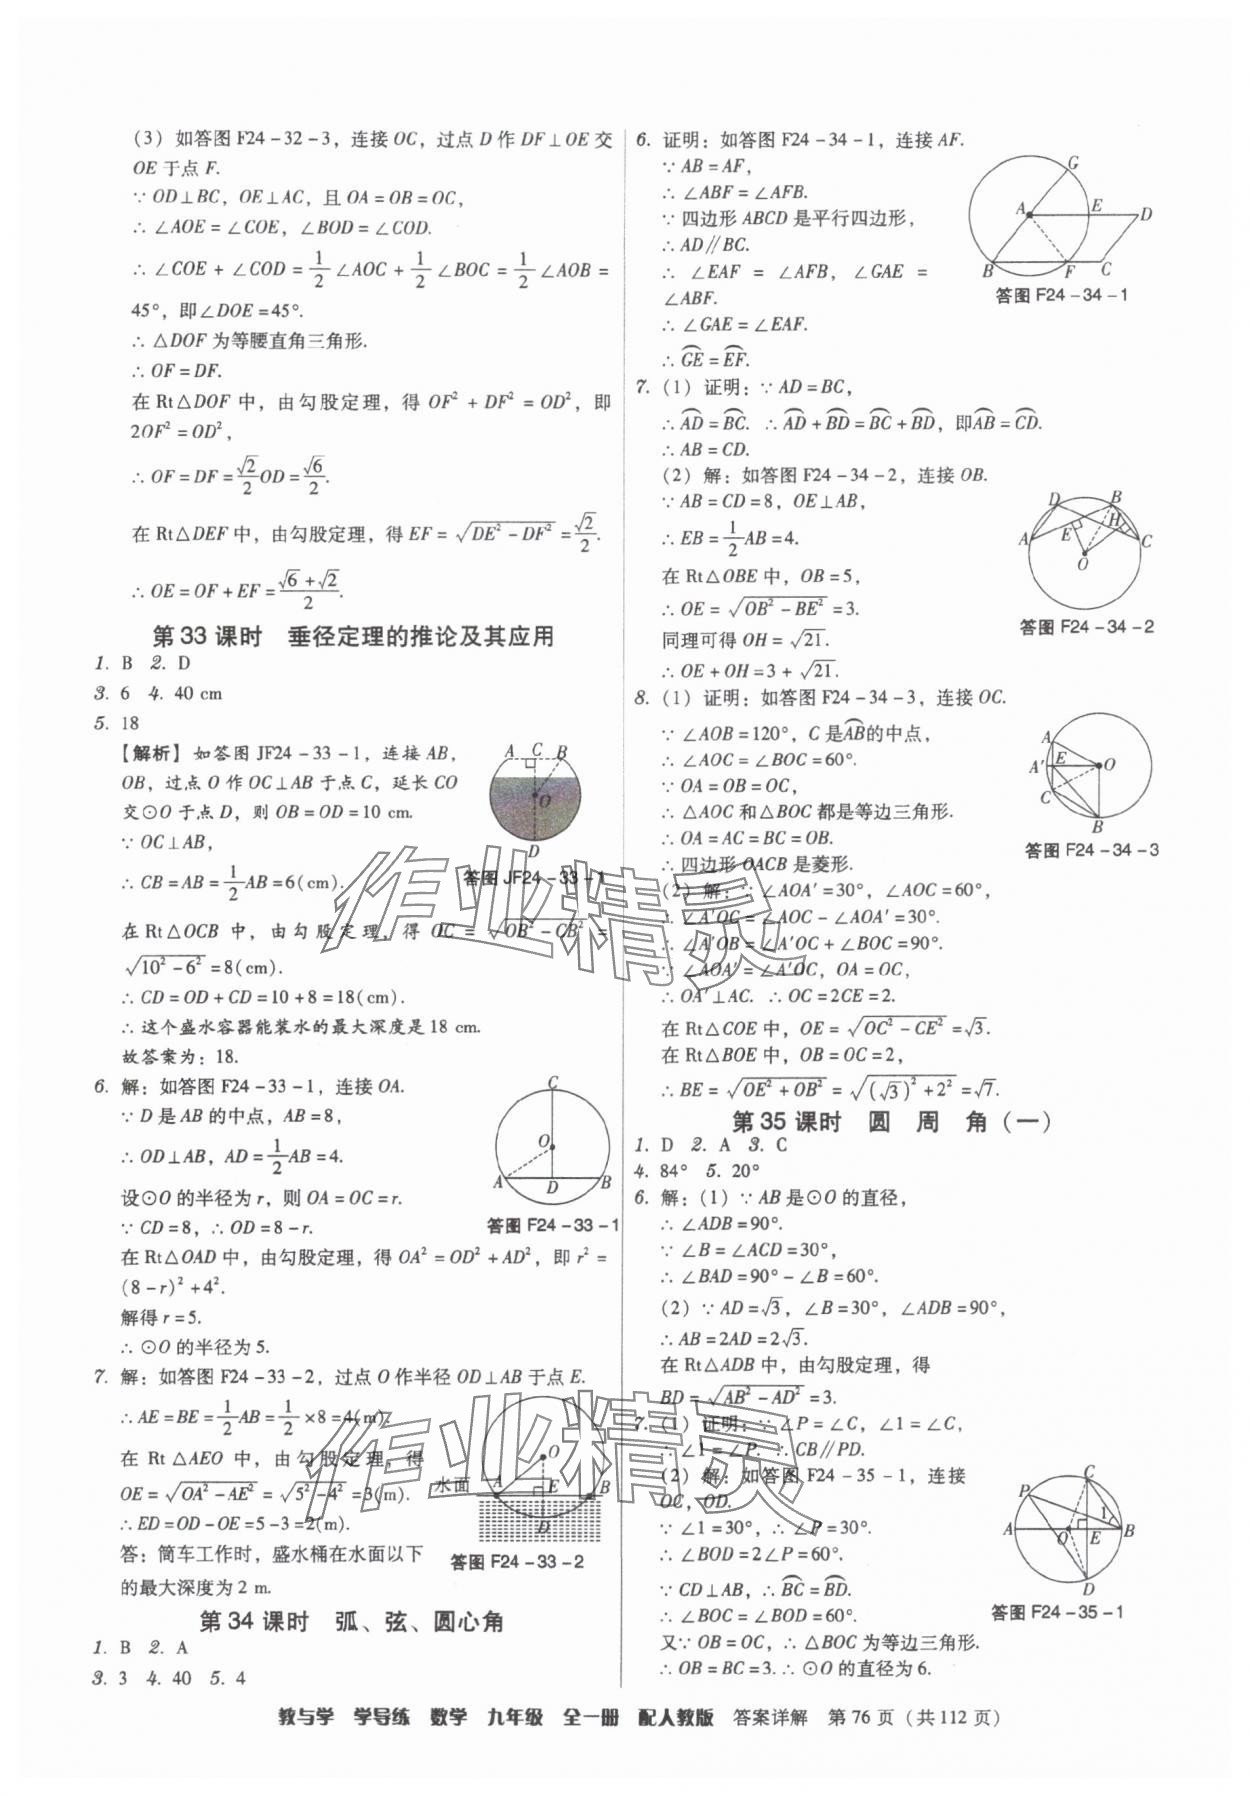 (3) 如答图 F24-32-3，连接 OC，过点 D 作 DF⊥OE 交
OE 于点 F.
∵ OD⊥BC，OE⊥AC，且 OA=OB=OC，
∴ ∠AOE=∠COE，∠BOD=∠COD.
∴ ∠COE+∠COD=1/2∠AOC+1/2∠BOC=1/2∠AOB=
45°，即∠DOE=45°.
∴ △DOF 为等腰直角三角形.
∴ OF=DF.
在 Rt△DOF 中，由勾股定理，得 OF²+DF²=OD²，即
2OF²=OD²，
∴ OF=DF=√2/2 OD=√6/2.
在 Rt△DEF 中，由勾股定理，得 EF=√(DE²-DF²)=√2/2.
∴ OE=OF+EF=(√6+√2)/2.
第 33 课时 垂径定理的推论及其应用
1. B 2. D
3. 6 4. 40 cm
5. 18
【解析】如答图 JF24-33-1，连接 AB，
OB，过点 O 作 OC⊥AB 于点 C，延长 CO
交⊙O 于点 D，则 OB=OD=10 cm.
∵ OC⊥AB，
∴ CB=AB=1/2 AB=6(cm).
在 Rt△OCB 中，由勾股定理，得 OC=√(OB²-CB²)=
√(10²-6²)=8(cm).
∴ CD=OD+CD=10+8=18(cm).
∴ 这个盛水容器能装水的最大深度是 18 cm.
故答案为：18.
A C B
O
D
答图 JF24-33-1
6. 解：如答图 F24-33-1，连接 OA.
∵ D 是 AB 的中点，AB=8，
∴ OD⊥AB，AD=1/2 AB=4.
设⊙O 的半径为 r，则 OA=OC=r.
∵ CD=8，∴ OD=8-r.
在 Rt△OAD 中，由勾股定理，得 OA²=OD²+AD²，即 r²=
(8-r)²+4².
解得 r=5.
∴ ⊙O 的半径为 5.
C
O
A D B
答图 F24-33-1
7. 解：如答图 F24-33-2，过点 O 作半径 OD⊥AB 于点 E.
∴ AE=BE=1/2 AB=1/2×8=4(m).
在 Rt△AEO 中，由勾股定理，得
OE=√(OA²-AE²)=√(5²-4²)=3(m).
∴ ED=OD-OE=5-3=2(m).
答：筒车工作时，盛水桶在水面以下
的最大深度为 2 m.
O
水面 A E B
D
答图 F24-33-2
第 34 课时 弧、弦、圆心角
1. B 2. A
3. 3 4. 40 5. 4
6. 证明：如答图 F24-34-1，连接 AF.
∵ AB=AF，
∴ ∠ABF=∠AFB.
∵ 四边形 ABCD 是平行四边形，
∴ AD∥BC.
∴ ∠EAF=∠AFB，∠GAE=
∠ABF.
∴ ∠GAE=∠EAF.
∴ G͡E=E͡F.
G
A E D
B F C
答图 F24-34-1
7. (1) 证明：∵ AD=BC，
∴ A͡D=B͡C. ∴ A͡D+B͡D=B͡C+B͡D，即A͡B=C͡D.
∴ AB=CD.
(2) 解：如答图 F24-34-2，连接 OB.
∵ AB=CD=8，OE⊥AB，
∴ EB=1/2 AB=4.
在 Rt△OBE 中，OB=5，
∴ OE=√(OB²-BE²)=3.
同理可得 OH=√21.
∴ OE+OH=3+√21.
D B
E H
A C
O
答图 F24-34-2
8. (1) 证明：如答图 F24-34-3，连接 OC.
∵ ∠AOB=120°，C 是A͡B的中点，
∴ ∠AOC=∠BOC=60°.
∵ OA=OB=OC，
∴ △AOC 和△BOC 都是等边三角形.
∴ OA=AC=BC=OB.
∴ 四边形 OACB 是菱形.
(2) 解：∵ ∠AOA′=30°，∠AOC=60°，
∴ ∠A′OC=∠AOC-∠AOA′=30°.
∴ ∠A′OB=∠A′OC+∠BOC=90°.
∵ ∠AOA′=∠A′OC，OA=OC，
∴ OA′⊥AC. ∴ OC=2CE=2.
在 Rt△COE 中，OE=√(OC²-CE²)=√3.
在 Rt△BOE 中，OB=OC=2，
∴ BE=√(OE²+OB²)=√((√3)²+2²)=√7.
A
A′ E O
C
B
答图 F24-34-3
第 35 课时 圆 周 角（一）
1. D 2. A 3. C
4. 84° 5. 20°
6. 解：(1) ∵ AB 是⊙O 的直径，
∴ ∠ADB=90°.
∵ ∠B=∠ACD=30°，
∴ ∠BAD=90°-∠B=60°.
(2) ∵ AD=√3，∠B=30°，∠ADB=90°，
∴ AB=2AD=2√3.
在 Rt△ADB 中，由勾股定理，得
BD=√(AB²-AD²)=3.
7. (1) 证明：∵ ∠P=∠C，∠1=∠C，
∴ ∠1=∠P. ∴ CB∥PD.
(2) 解：如答图 F24-35-1，连接
OC，OD.
∵ ∠1=30°，∴ ∠P=30°.
∴ ∠BOD=2∠P=60°.
∵ CD⊥AB，∴ B͡C=B͡D.
∴ ∠BOC=∠BOD=60°.
又∵ OB=OC，∴ △BOC 为等边三角形.
∴ OB=BC=3. ∴ ⊙O 的直径为 6.
P C
1
A O E B
D
答图 F24-35-1
作业精灵
作业精灵
教与学 学导练 数学 九年级 全一册 配人教版 答案详解 第 76 页（共 112 页）